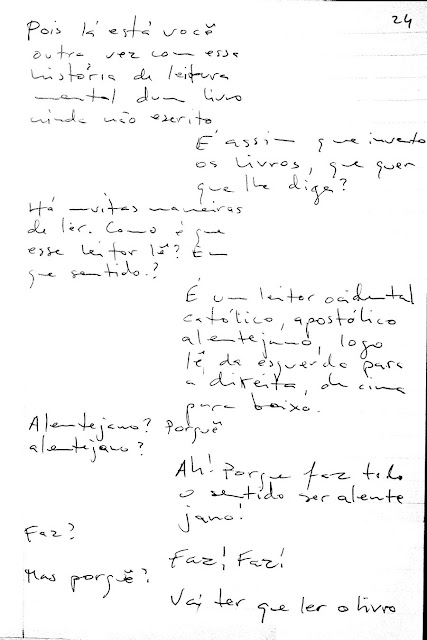 24
Pois lá está você
outra vez com essa
história de leitura
mental dum livro
ainda não escrito
É assim que invento
os livros, que quer
que lhe diga?
Há muitas maneiras
de ler. Como é que
esse leitor lê? Em
que sentido?
É um leitor ocidental
católico, apostólico
alentejano, logo
lê da esquerda para
a direita, de cima
para baixo.
Alentejano? Porquê
alentejano?
Ah! Porque faz todo
o sentido ser alente
jano!
Faz?
Faz! Faz!
Mas porquê?
Vai ter que ler o livro